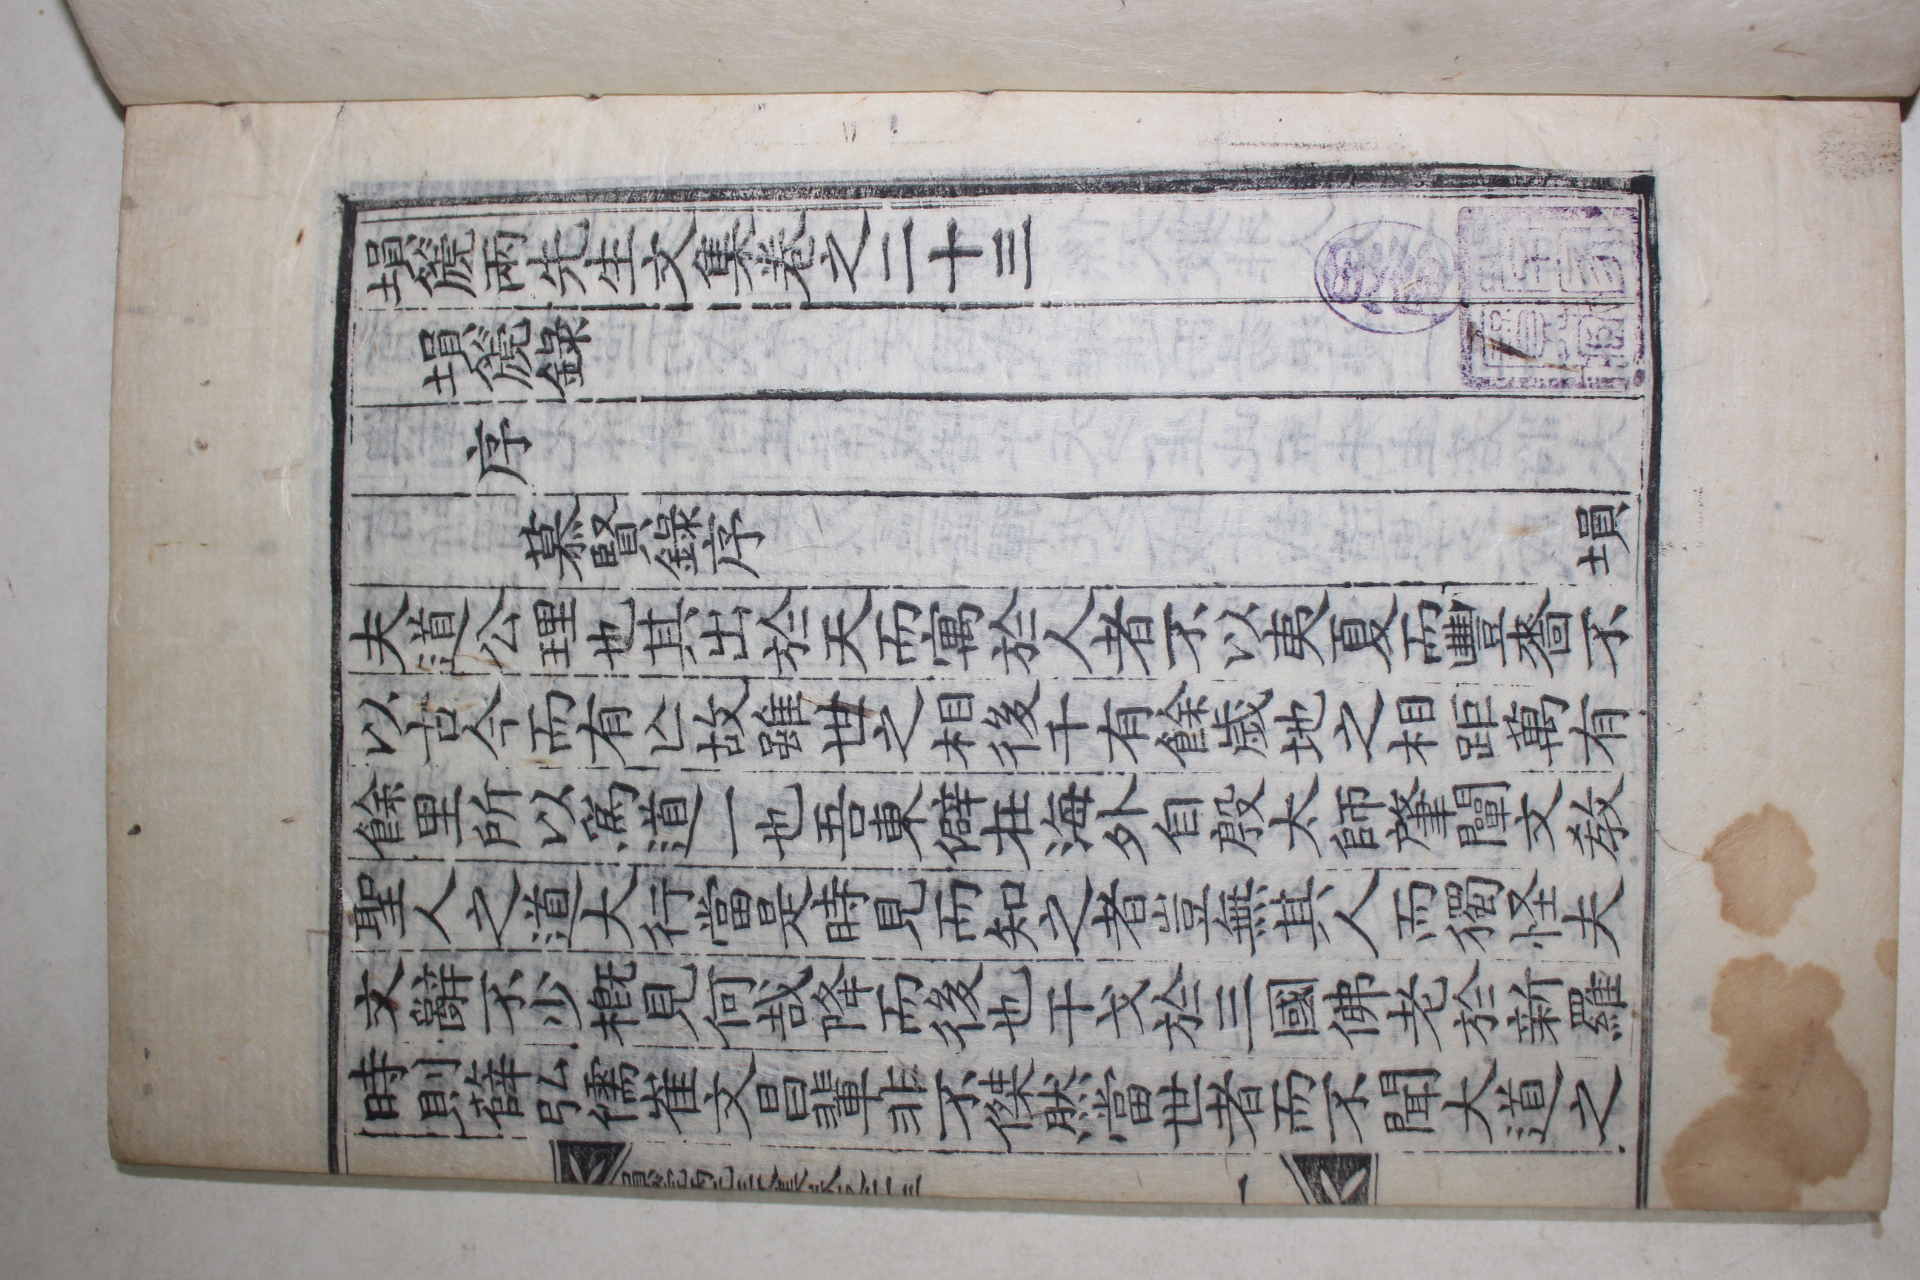 塤篪兩先生文集卷之二十三
塤篪錄
序
慕賢錄序 塤
夫道公理也其出於天而寓於人者不以夷夏而豐嗇不
以古今而有亾故雖世之相後千有餘歲地之相距萬有
餘里所以爲道一也吾東僻在海外自殷太師肇闡文教
聖人之道大行當是時見而知之者豈無其人而獨怪夫
文辭不少槪見何哉降而後也干戈於三國佛老於新羅
時則薛弘儒崔文昌輩非不傑然當世者而不聞大道之
塤篪兩先生文集卷之二十三
一